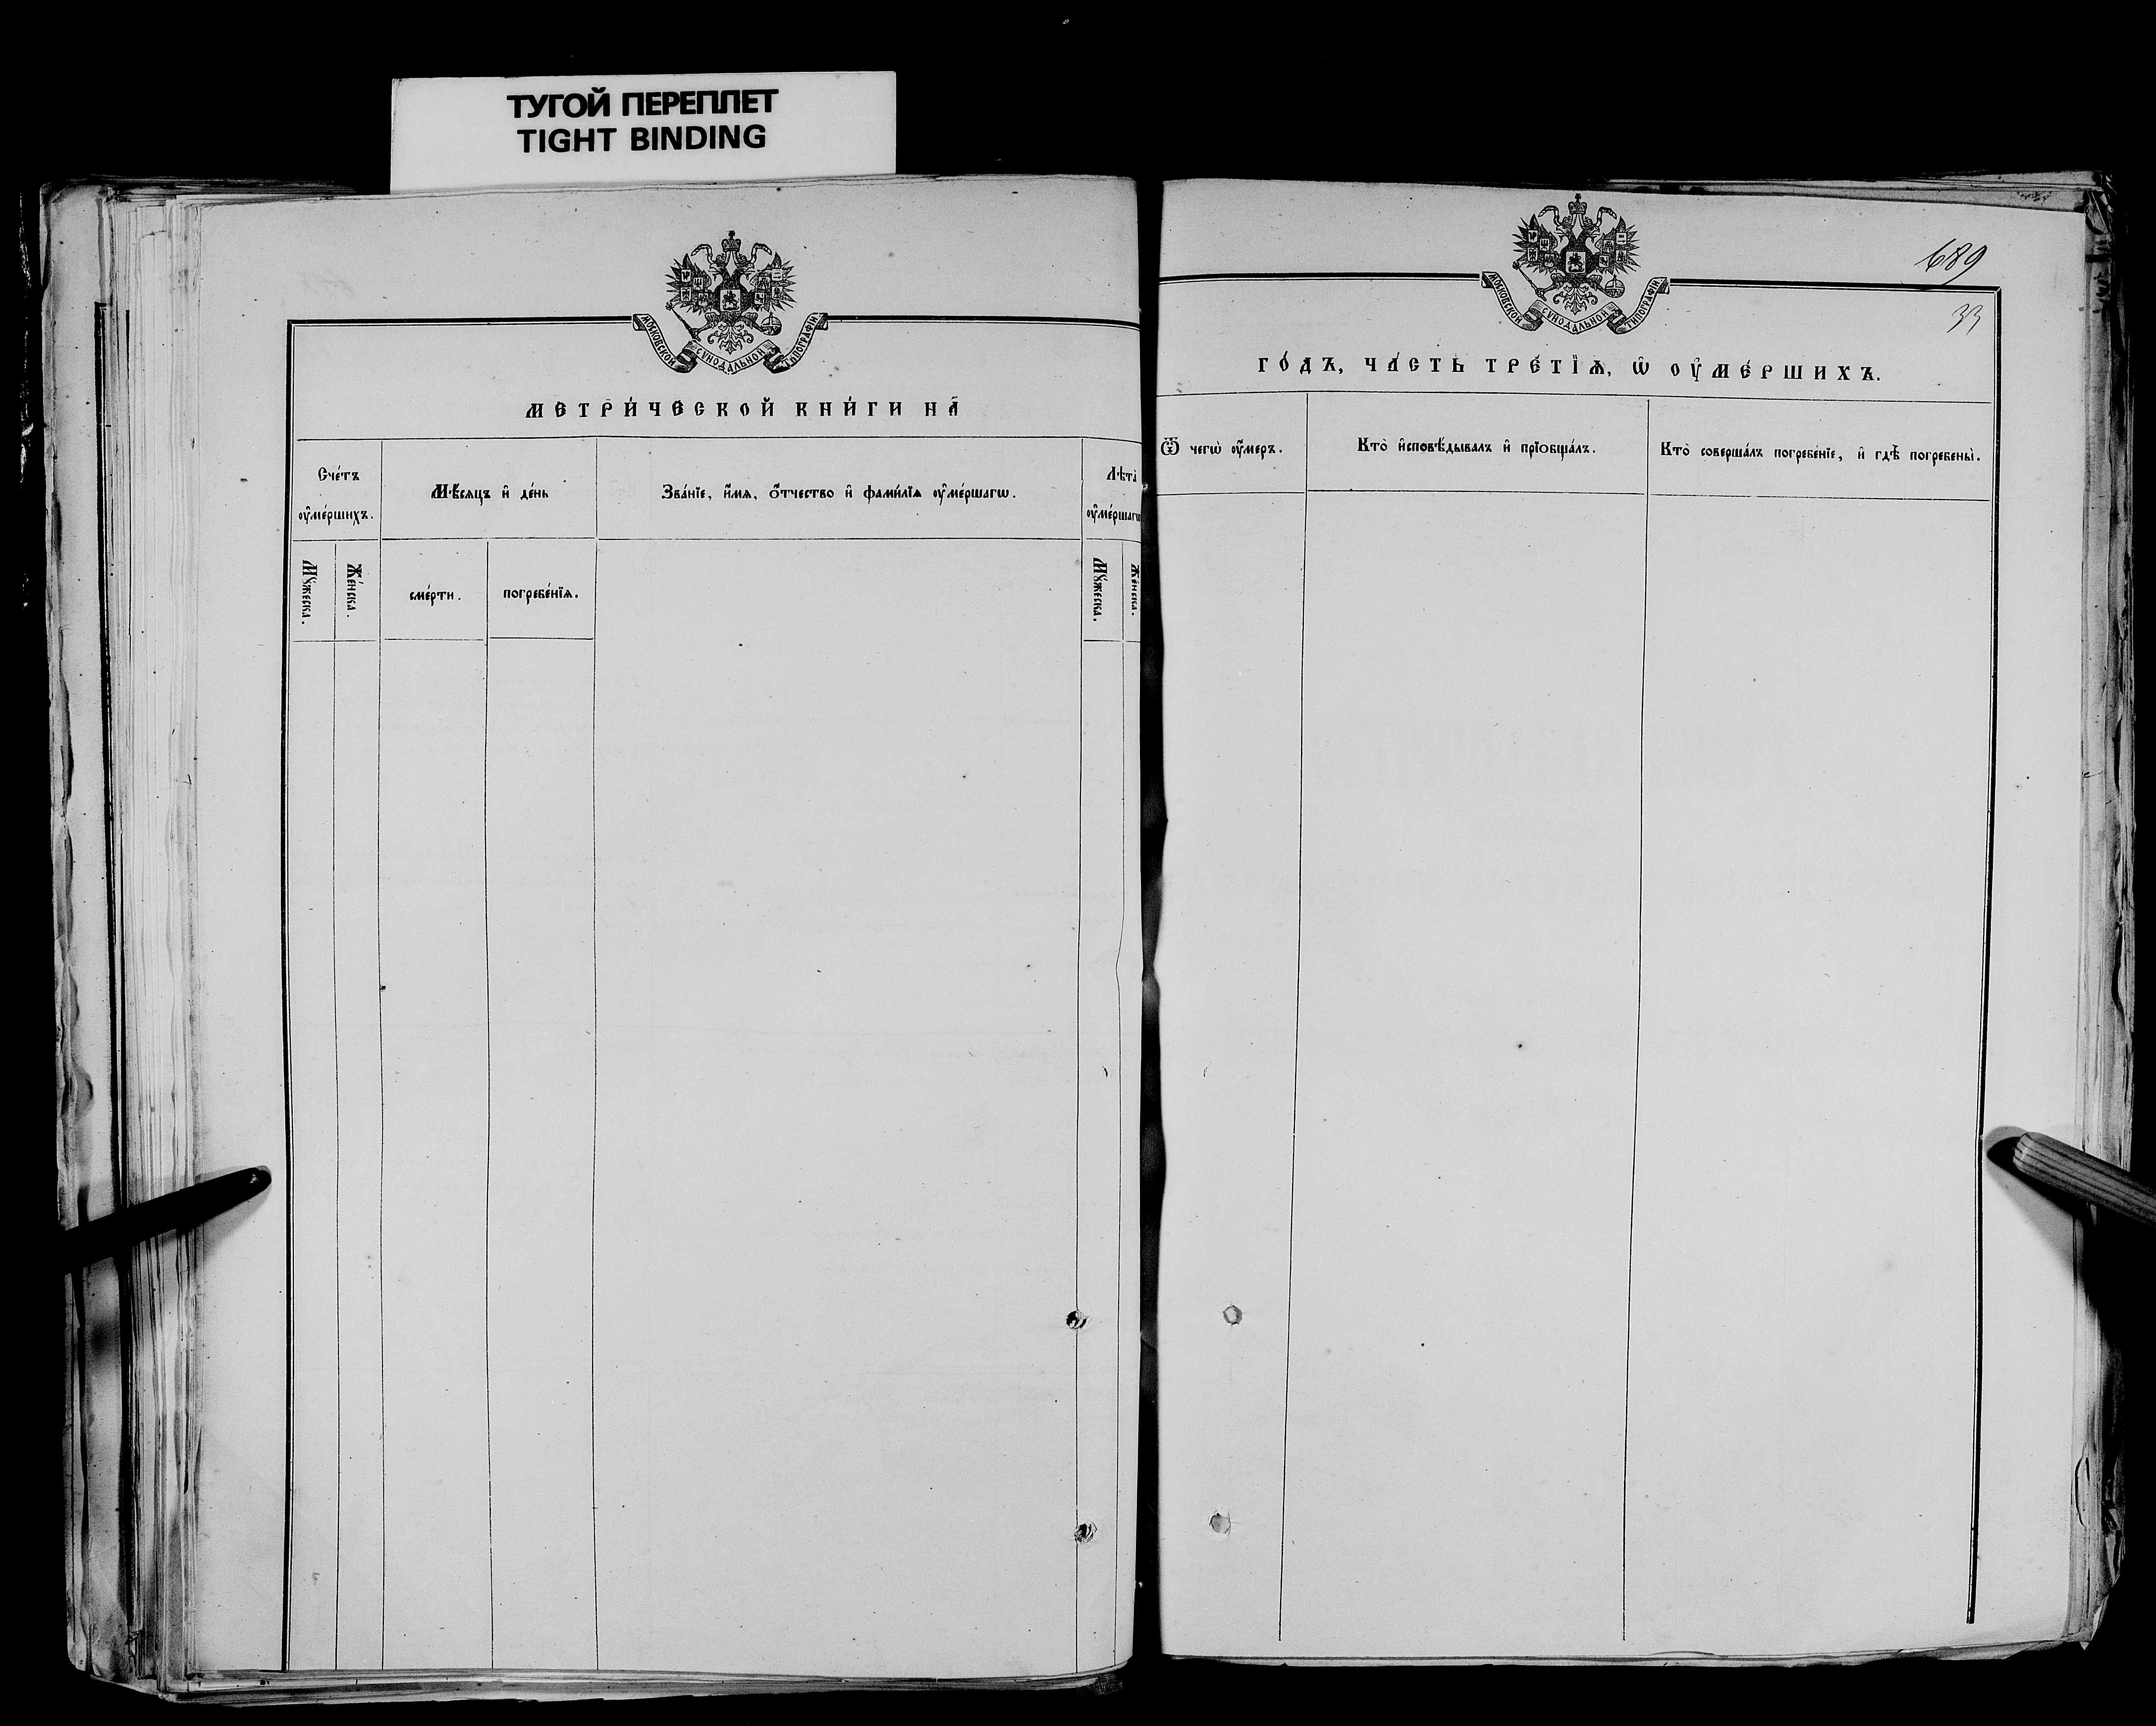 ТУГОЙ ПЕРЕПЛЕТ
TIGHT BINDING
МОСКОВСКОЙ СѴНОДАЛЬНОЙ ТИПОГРАФІИ
МЕТРИ́ЧЕСКОЙ КНИ́ГИ НА̀
Сче́тъ
ᲂу҆ме́ршихъ.
Мѣ́сяцъ и҆ де́нь
Зва́нїе, и҆́мѧ, ѻ҆́тчество и҆ фами́лїѧ ᲂу҆ме́ршагѡ.
Лѣ̀та
ᲂу҆ме́ршагѡ
Мꙋ́жеска.
Же́нска.
сме́рти.
погребе́нїѧ.
Мꙋ́жеска.
Же́нска.
МОСКОВСКОЙ СѴНОДАЛЬНОЙ ТИПОГРАФІИ
689
33
ГО́ДЪ, ЧА́СТЬ ТРЕ́ТЇѦ, Ѡ҆ ОУ҆МЕ́РШИХЪ.
Ѿ чегѡ̀ ᲂу҆́меръ.
Кто̀ и҆сповѣ́дывалъ и҆ прїѻбща́лъ.
Кто̀ соверша́лъ погребе́нїе, и҆ гдѣ̀ погребены̀.